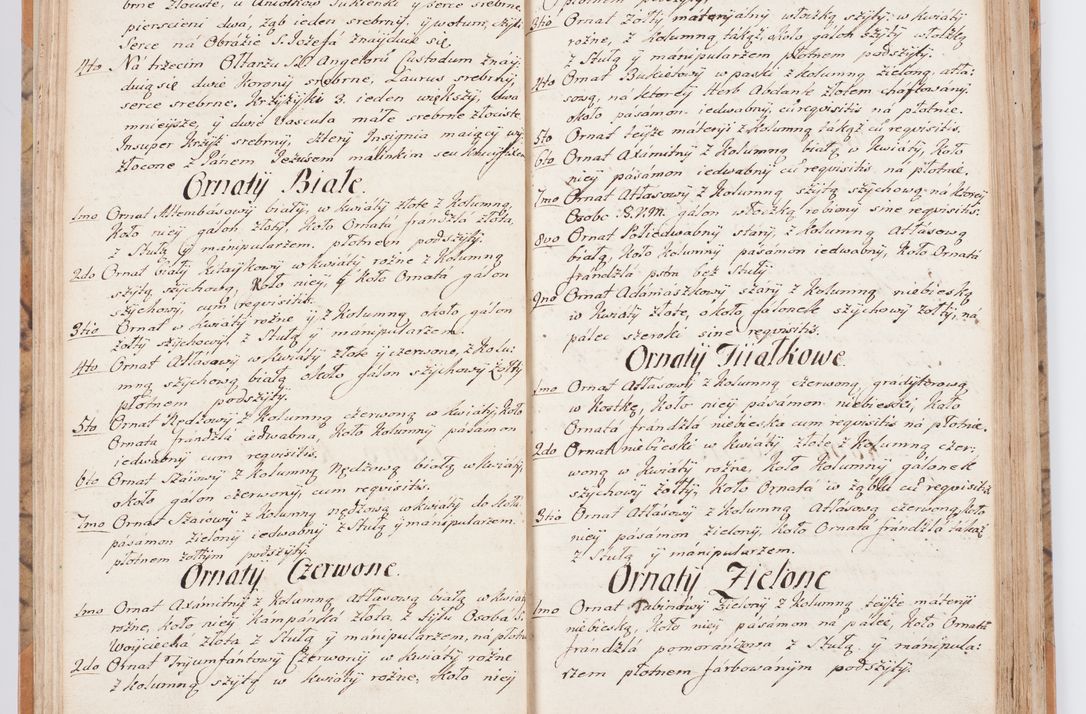 brne złociste, u Aniołkow Sukienki y serce srebrne
pierscieni dwá, ząb ieden srebrny, y wotum,
Serce ná Obrázie S. Jozefá znayduie się
4to Ná trzecim Ołtarzu SS Angelorū Custodum znáy,
duią się dwie Korony srebrne, Laurus srebrny,
serce srebrne, Krzyżyki 3. ieden większy, dwa
mnieysze, y dwie Vascula małe srebrne złociste
Insuper Krzyż srebrny, cztery Insignia maiący wy,
złocone z Panem Jezusem malinkim seu
Ornaty Białe.
1mo Ornat Altembasowy biały, w kwiaty złote z Kolumną,
Koło niey galon złoty, Koło Ornata frandzla złota,
z Stułą y manipularzem. płotnem podszyty.
2do Ornat biały Kitaykowy w kwiaty rożne z Kolumną
szytą szychową, Koło niey, y Koło Ornatá galon
szychowy, cum requisitis.
3tio Ornat w kwiaty rożne y z Kolumną około gálon
żołty szychowy, z Stułą y manipularzem.
4to Ornat Atłásowy w kwiáty złote y czerwone, z Kolu:
mną szychową białą około galon szychowy żołty
płotnem podszyty.
5to Ornat Rędzowy z Kolumną czerwoną w kwiaty, Koło
Ornata frandzla iedwabna, Koło Kolumny pásamon
iedwabny cum requisitis.
6to Ornat Száiowy z Kolumną Rędzową białą w kwiáty,
około gálon czerwony, cum requisitis.
7mo Ornat Szaiowy z Kolumną w kwiáty do Koła
pásamon zielony iedwabny z Stułą y manipularzem.
płotnem żołtym podszyty.
Ornáty Czerwone.
1mo Ornat Axámitny z Kolumną atłasową białą w kwiaty
rożne, koło niey Kampánká złota, z tyłu Osobá S.
Woyciechá złota z Stułą y mánipularzem, ná płotnie
2do Ornat Tryumfántowy Czerwony w kwiáty rożne
z Kolumną szytą w kwiáty rożne, Koło niey
3tio Ornat żołty materyalny włoczką szyty: w kwiáty
rożne, z Kolumną takąż, około galon szyty włoczką
z Stułą y mánipularzem płotnem podszyty.
4to Ornat Bukietowy w paski z Kolumną zieloną, atła:
sową, ná ktorey Herb Abdank złotem cháftowány,
około pásámon iedwabny, cū requisitis ná płotnie.
5to Ornat teyże máteryi z Kolumną tákąż cū requisitis.
6to Ornat Axámitny z Kolumną białą w kwiáty, Koło
niey pásámon iedwabny cū requisitis ná płotnie.
7mo Ornat Atłasowy z Kolumną szytą szychową, ná ktorey
Osobá :S.V.M. gálon włoczką robiony sine requisitis.
8vo Ornat Połiedwabny stáry, z Kolumną Atłasową
białą, Koło Kolumny pásámon iedwabny, Koło Ornatá
frandzla pstra bez Stuły
9no Ornat Adámaszkowy szary z Kolumną niebieską
w kwiaty złote, około gálonek szychowy żołty, ná
pálec szeroki sine requisitis.
Ornaty Fijałkowe.
1mo Ornat Atłasowy z Kolumną czerwoną, gradyterową,
w Kostkę, Koło niey pásámon niebieski, Koło
Ornatá frándzlá niebieska cum requisitis ná płotnie.
2do Ornat niebieski w kwiaty złote z Kolumną czer,
woną w kwiaty rożne, Koło Kolumny, gálonek
szychowy żołty, Koło Ornatá w ząbki cū requisitis
3tio Ornat Atłásowy z Kolumną Atłasową czerwoną, koło
niey pásamon zielony, Koło Ornatá frándzlá takáż
z Stułą y mánipularzem.
Ornaty Zielone
1mo Ornat Tabinowy zielony z Kolumną teyże máteryi
niebieską, Koło niey pásámon ná pálec, Koło Ornatá
frándzlá pomoránczowa z Stułą y mánipula:
rzem płotnem fárbowánym podszyty.